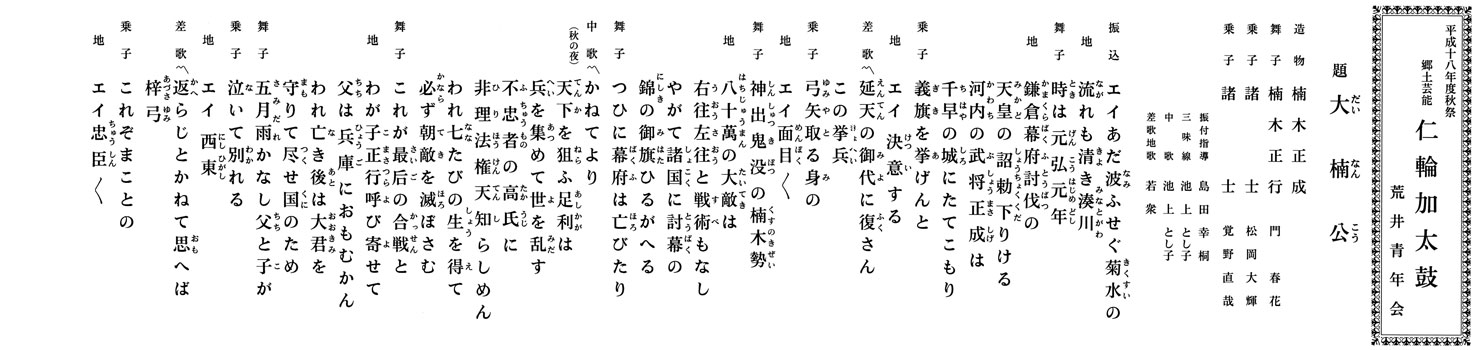 平成十八年度秋祭
郷土芸能 仁輪加太鼓
荒井青年会
題 大楠公
造物 楠木正成
舞子 楠木正行 門 春花
乗子 諸士 松岡大輝
乗子 諸士 覚野直哉
振付指導 島田幸桐
三味線 池上とし子
中歌 池上とし子
差歌地歌 若衆
振込 エイあだ波ふせぐ菊水の
地 流れも清き湊川
舞子 時は元弘元年
鎌倉幕府討伐の
地 天皇の詔勅下りける
河内の武将正成は
千早の城にたてこもり
乗子 義旗を挙げんと
地 エイ 決意する
差歌〽延天の御代に復さん
この挙兵
乗子 弓矢取る身の
地 エイ面目〱
舞子 神出鬼没の楠木勢
地 八十萬の大敵は
右往左往と戦術もなし
やがて諸国に討幕の
錦の御旗ひるがへる
舞子 つひに幕府は亡びたり
中歌〽かねてより
(秋の夜) 天下を狙ふ足利は
兵を集めて世を乱す
不忠者の高氏に
非理法権天知らしめん
われ七たびの生を得て
必ず朝敵を滅ぼさむ
舞子 これが最后の合戦と
地 わが子正行呼び寄せて
父は兵庫におもむかん
われ亡き後は大君を
守りて尽せ国のため
舞子 五月雨かなし父と子が
乗子 泣いて別れる
地 エイ 西東
差歌〽返らじとかねて思へば
梓弓
乗子 これぞまことの
地 エイ忠臣〱